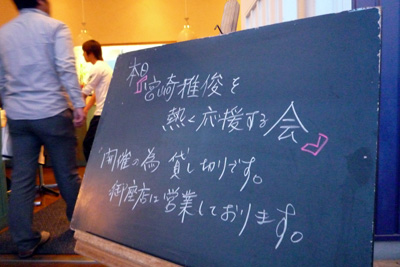 本日
宮崎稚俊を
熱く応援する会
開催の為貸し切りです。
御座店は営業しております。